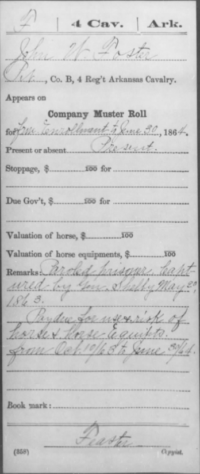 F | 4 Cav. | Ark.
John W. Foster
Pvt., Co. B, 4 Reg't Arkansas Cavalry.
Appears on
Company Muster Roll
for from Enrollment to June 30, 1864.
Present or absent Present.
Stoppage, $ 100 for
Due Gov't, $ 100 for
Valuation of horse, $ 100
Valuation of horse equipments, $ 100
Remarks: Paroled prisoner. Capt
ured by Gen. Shelby May
1863.
Pay due for use & risk of
horse & horse Equipts.
from Oct. to June 30/64.
Book mark:
(358) Copyist.